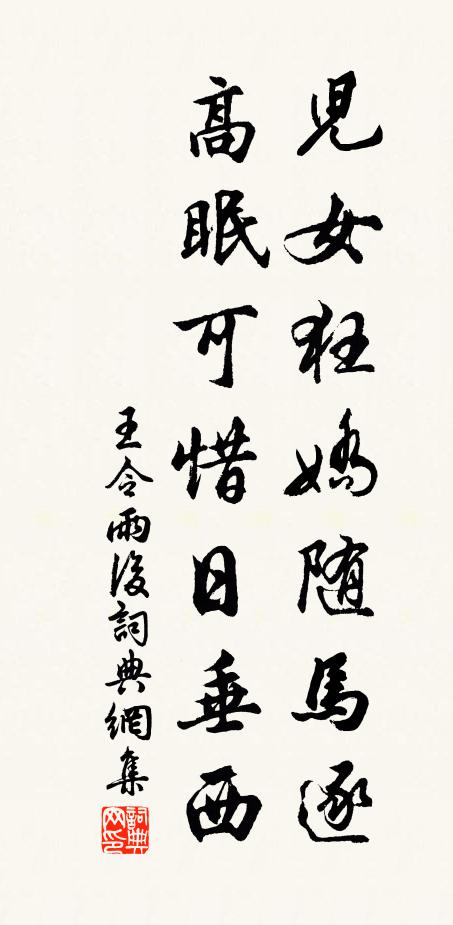 兒女狂嬌随馬逐
高眠可惜日垂西
王令雨後詞典網集
詞典网印